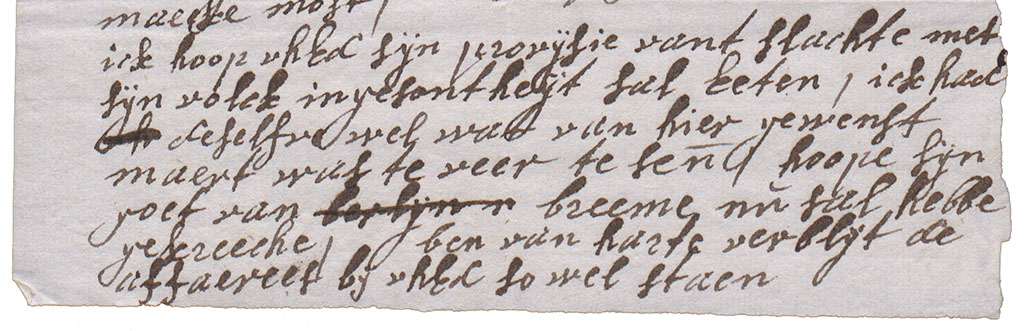 maecke most /
ick hoop uhEd sijn provijsie vant slachte met
sijn volck in gesontheijt sal eeten / ick had
deselfve wel wat van hier gewenst
maert was te veer te sen̄ / hoope sijn
goet van breeme nu sal hebbe
gekreeche / ben van harte verblijt de
affaerees bij uhEd so wel staen